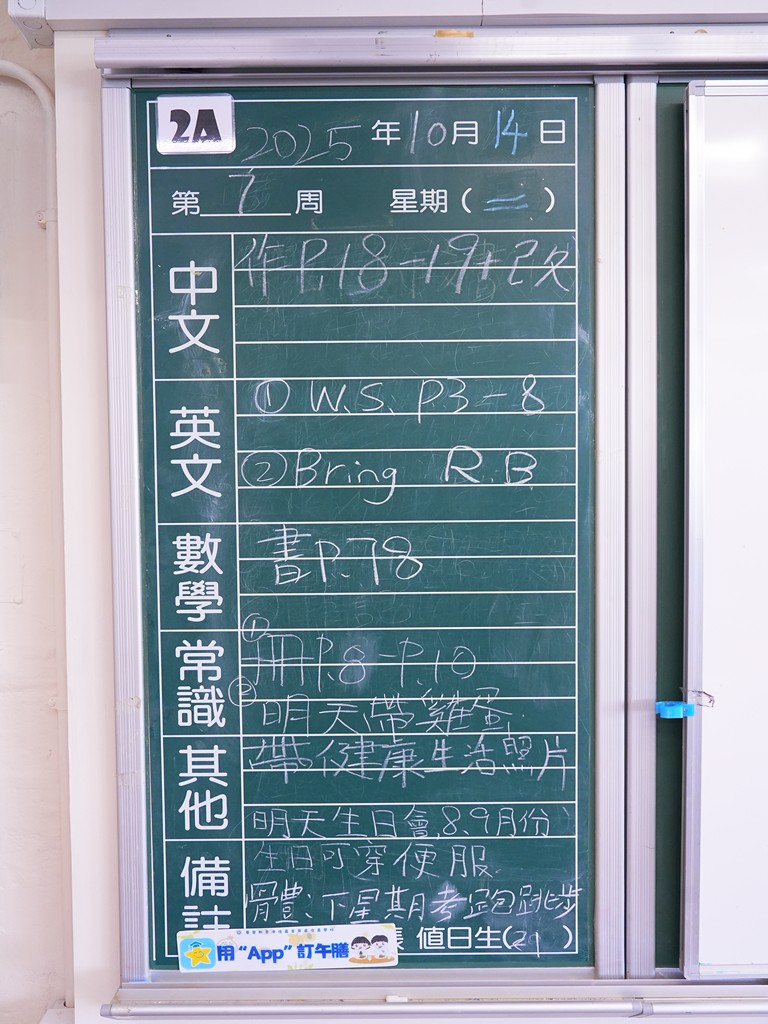 2A
2025年10月14日
第7周 星期(二)
中文
作P.18-19+改
英文
① W.S. P3-8
② Bring R.B
數學
書P.78
常識
① 冊P.8-P.10
② 明天帶雞蛋
其他
帶健康生活照片
明天生日會,8.9月份
生日可穿便服
備註
體:下星期考跑跳步
值日生(21)
用“App”訂午膳